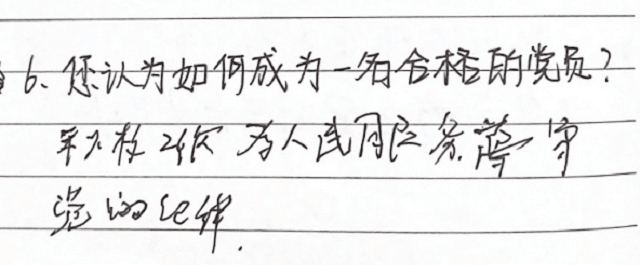 6、您认为如何成为一名合格的党员?
为人民服务 守
党的纪律.